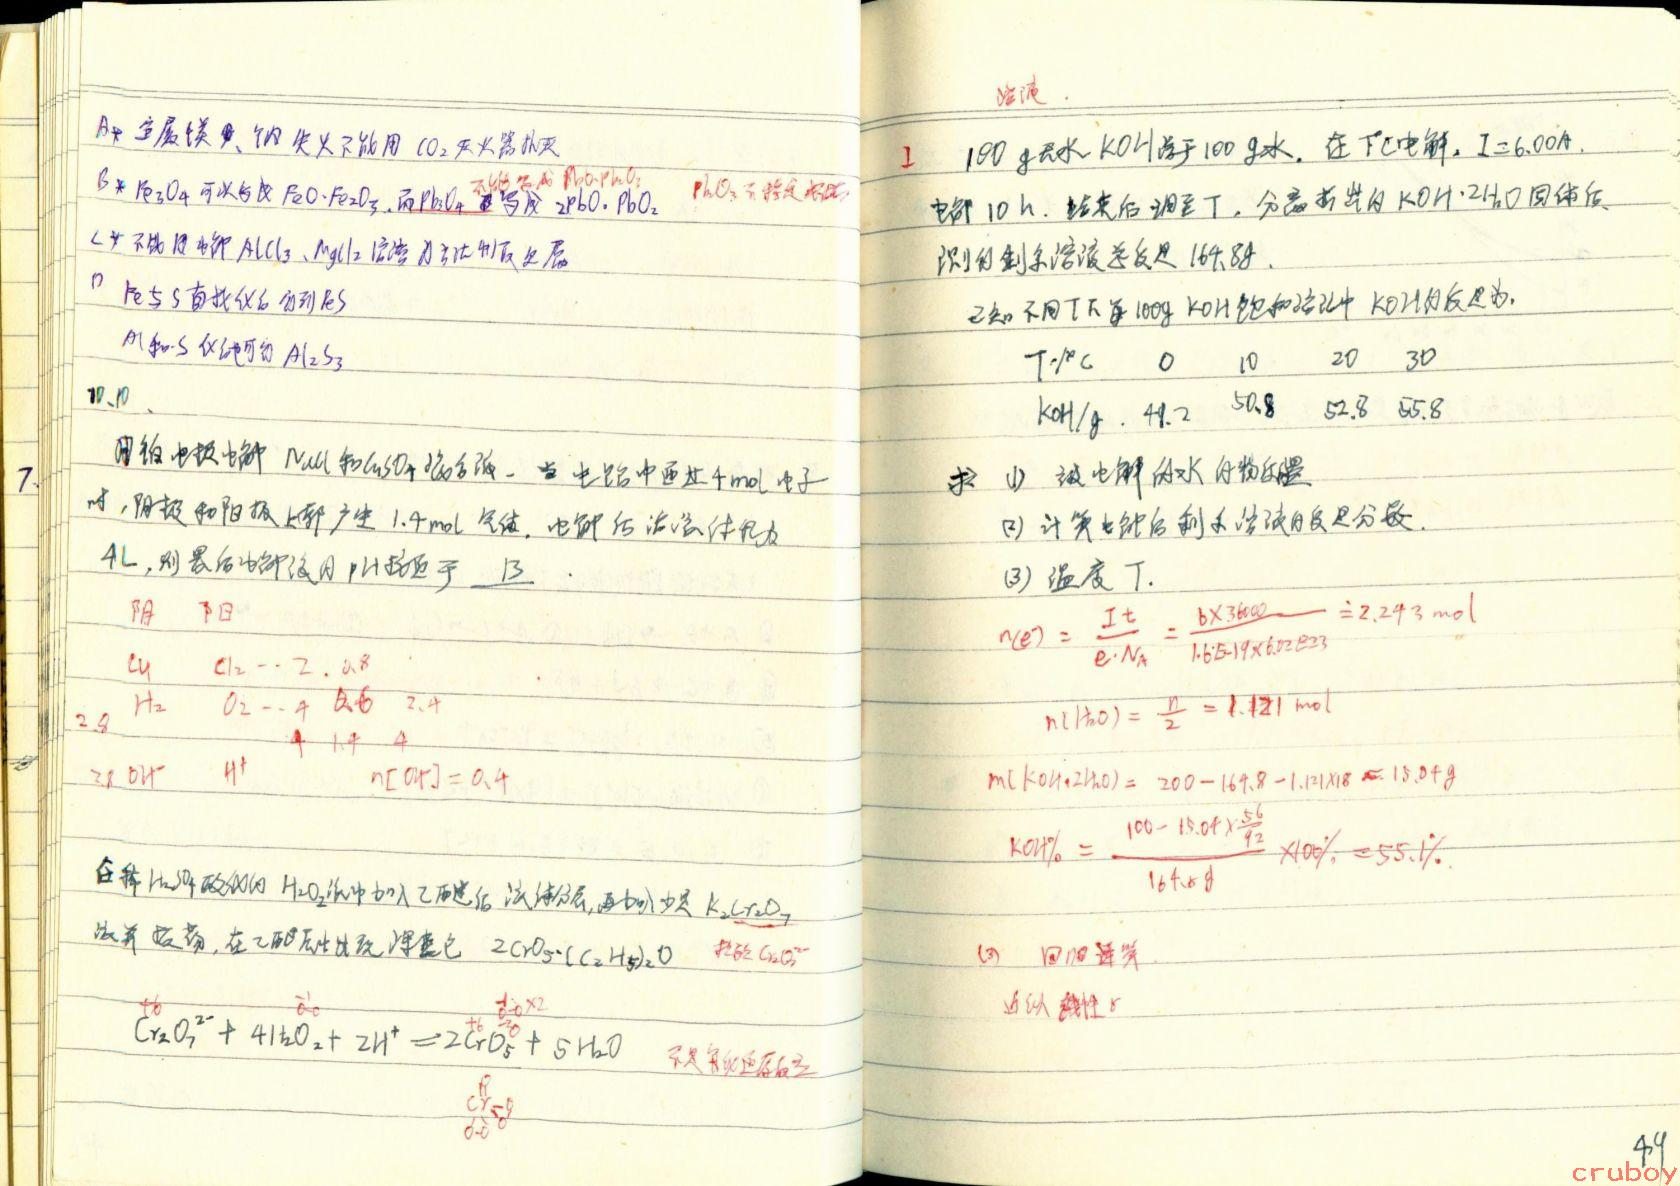 A* 金属镁、钠失火不能用CO₂灭火器扑灭
不能写成 PbO·Pb₂O₃
B* Fe₃O₄可以写成FeO·Fe₂O₃,而Pb₃O₄ 写成 2PbO·PbO₂
C* 不能用电解AlCl₃、MgCl₂ 方法制取金属
D Fe与S直接化合得到FeS
Al和S化合可得Al₂S₃
10.10
7.
用铂电极电解 NaCl和CuSO₄混合液。当电路中通过4mol电子
时,阴极和阳极均产生1.4mol气体,电解后溶液体积为
4L,则最后电解液的pH接近于 13
阴 阳
Cu Cl₂ -- 2 . 0.8
H₂ O₂ -- 4 0.6 2.4
2.8
4 1.4 4
2.8 OH⁻ H⁺ n[OH⁻]=0.4
在稀H₂SO₄酸化的H₂O₂ 中加入乙醚后 液体分层,再加入少量K₂Cr₂O₇
溶液振荡,在乙醚层出现深蓝色 2CrO₅·(C₂H₅)₂O
检验Cr₂O₇²⁻
+6
Cr₂O₇²⁻ + 4H₂O₂ + 2H⁺ = 2CrO₅ + 5H₂O
不是氧化还原反应
溶液.
I 100g无水KOH溶于100g水。在T℃电解。I=6.00A.
电解10h.结束后调至T,分离析出的KOH·2H₂O固体后
测得剩余溶液总质量164.8g.
已知不同T下每100g KOH饱和溶液中KOH的质量为.
T/℃ 0 10 20 30
KOH/g. 49.2 50.8 52.8 55.8
求 (1) 被电解的水的物质量
(2) 计算电解后剩余溶液的质量分数.
(3) 温度T.
n(e⁻) = It / e·N_A = 6×36000 / 1.6E-19×6.02E23 ≐ 2.243 mol
n(H₂O) = n/2 = 1.121 mol
m(KOH·2H₂O) = 200-164.8-1.121×18 = 15.04g
KOH% = (100-15.04×56/92) / 164.8g ×100% = 55.1%.
(3) 回归计算
近似线性
44
cruboy